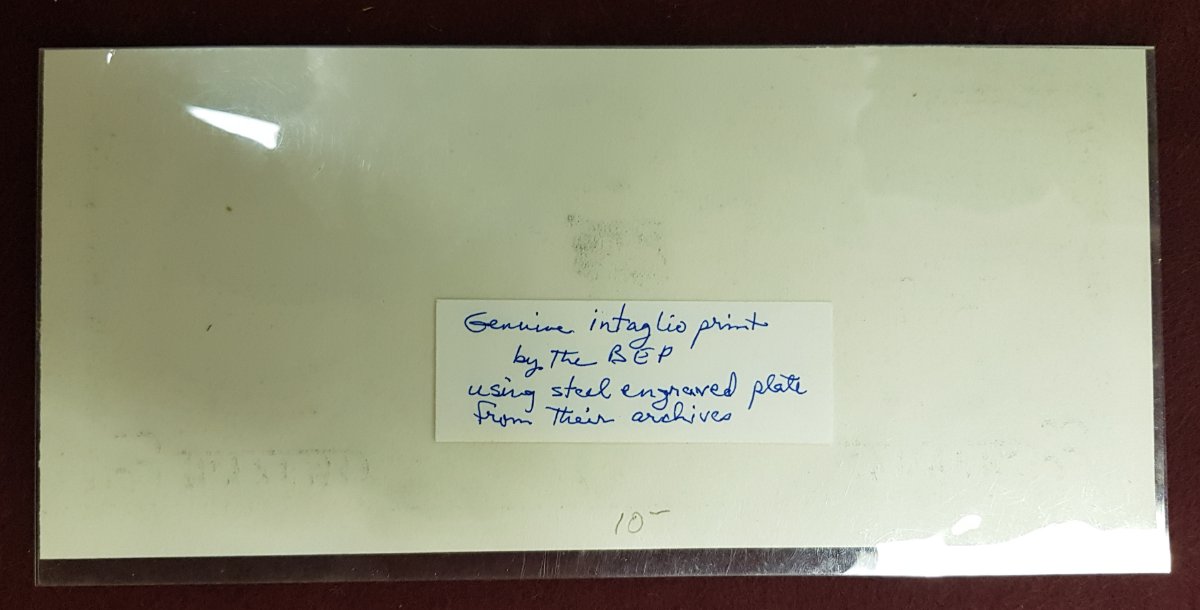 Genuine intaglio print
by the BEP
using steel engraved plate
from their archives
10-